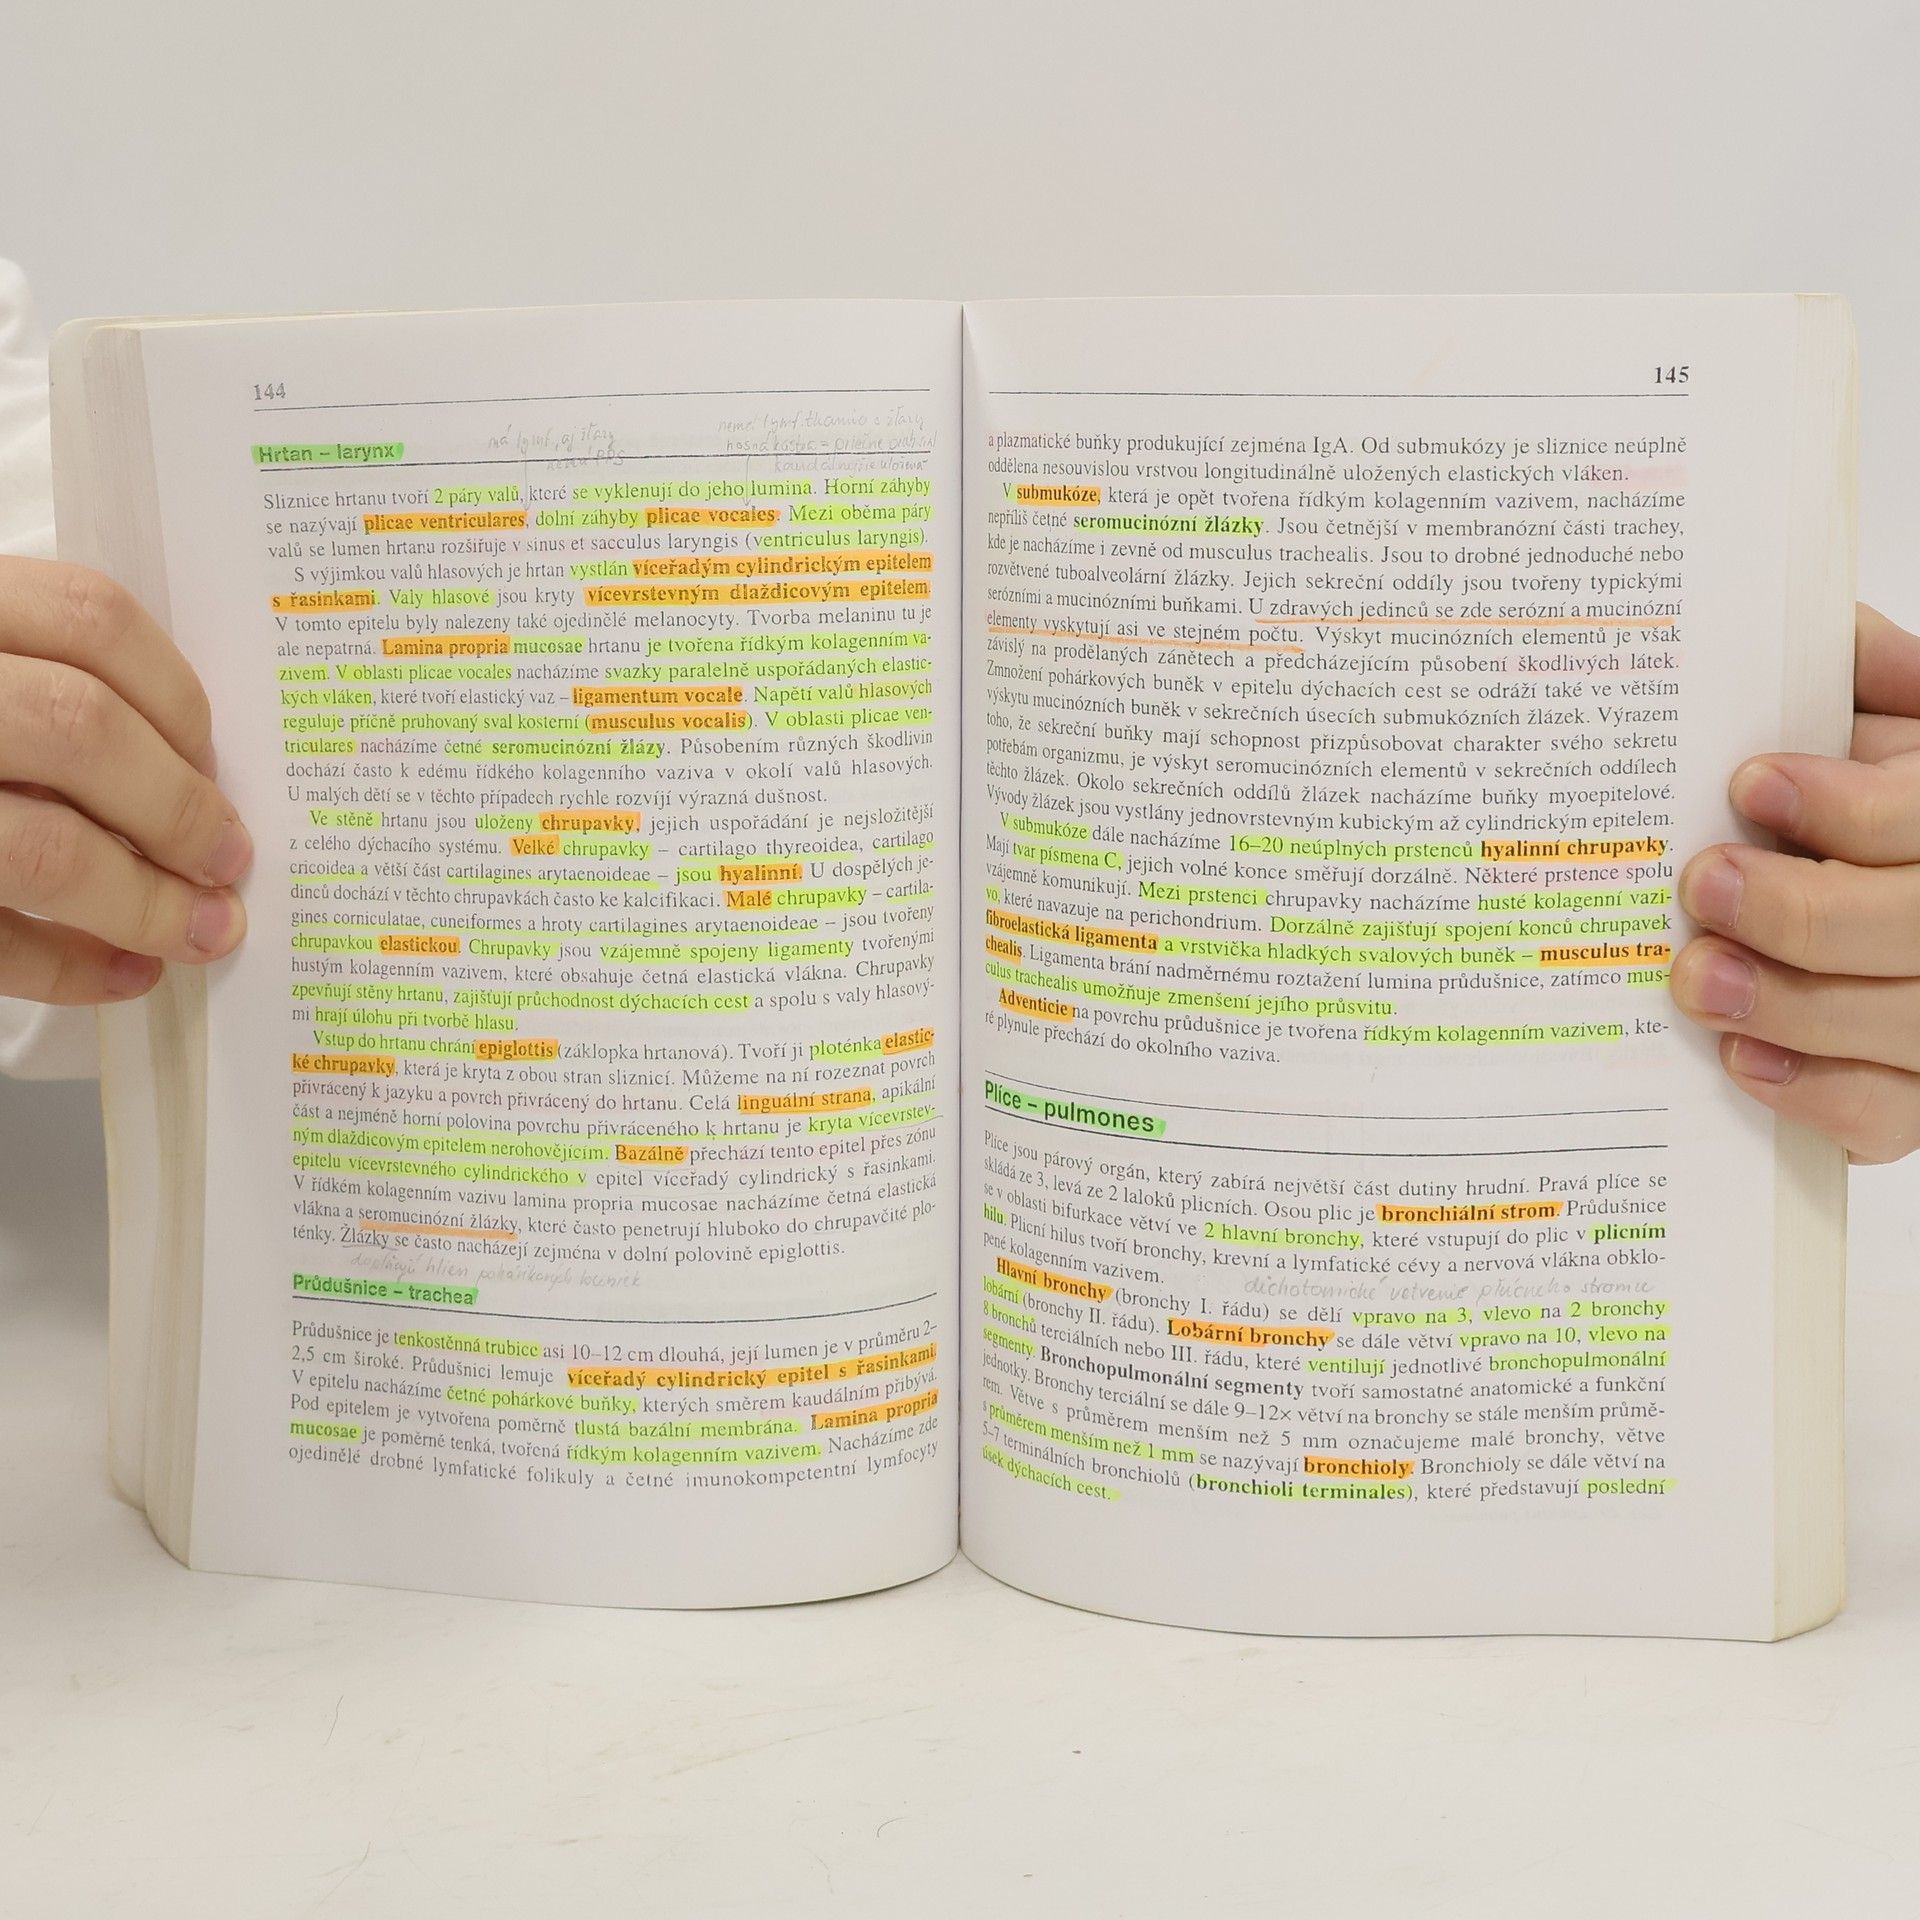 144
Hrtan – larynx
Sliznice hrtanu tvoří 2 páry valů, které se vyklenují do jeho lumina. Horní záhyby
se nazývají plicae ventriculares, dolní záhyby plicae vocales. Mezi oběma páry
valů se lumen hrtanu rozšiřuje v sinus et sacculus laryngis (ventriculus laryngis).
S výjimkou valů hlasových je hrtan vystlán víceřadým cylindrickým epitelem
s řasinkami. Valy hlasové jsou kryty vícevrstevným dlaždicovým epitelem.
V tomto epitelu byly nalezeny také ojedinělé melanocyty. Tvorba melaninu tu je
ale nepatrná. Lamina propria mucosae hrtanu je tvořena řídkým kolagenním va-
zivem. V oblasti plicae vocales nacházíme svazky paralelně uspořádaných elastic-
kých vláken, které tvoří elastický vaz – ligamentum vocale. Napětí valů hlasových
reguluje příčně pruhovaný sval kosterní (musculus vocalis). V oblasti plicae ven-
triculares nacházíme četné seromucinózní žlázy. Působením různých škodlivin
dochází často k edému řídkého kolagenního vaziva v okolí valů hlasových.
U malých dětí se v těchto případech rychle rozvíjí výrazná dušnost.
Ve stěně hrtanu jsou uloženy chrupavky, jejich uspořádání je nejsložitější
z celého dýchacího systému. Velké chrupavky – cartilago thyreoidea, cartilago
cricoidea a větší část cartilagines arytaenoideae – jsou hyalinní. U dospělých je-
dinců dochází v těchto chrupavkách často ke kalcifikaci. Malé chrupavky – cartila-
gines corniculatae, cuneiformes a hroty cartilagines arytaenoideae – jsou tvořeny
chrupavkou elastickou. Chrupavky jsou vzájemně spojeny ligamenty tvořenými
hustým kolagenním vazivem, které obsahuje četná elastická vlákna. Chrupavky
zpevňují stěny hrtanu, zajišťují průchodnost dýchacích cest a spolu s valy hlasový-
mi hrají úlohu při tvorbě hlasu.
Vstup do hrtanu chrání epiglottis (záklopka hrtanová). Tvoří ji ploténka elastic-
ké chrupavky, která je kryta z obou stran sliznicí. Můžeme na ní rozeznat povrch
přivrácený k jazyku a povrch přivrácený do hrtanu. Celá linguální strana, apikální
část a nejméně horní polovina povrchu přivráceného k hrtanu je kryta vícevrstev-
ným dlaždicovým epitelem nerohovějícím. Bazálně přechází tento epitel přes zónu
epitelu vícevrstevného cylindrického v epitel víceřadý cylindrický s řasinkami.
V řídkém kolagenním vazivu lamina propria mucosae nacházíme četná elastická
vlákna a seromucinózní žlázky, které často penetrují hluboko do chrupavčité plo-
ténky. Žlázky se často nacházejí zejména v dolní polovině epiglottis.
Průdušnice – trachea
Průdušnice je tenkostěnná trubice asi 10–12 cm dlouhá, její lumen je v průměru 2–
2,5 cm široké. Průdušnici lemuje víceřadý cylindrický epitel s řasinkami.
V epitelu nacházíme četné pohárkové buňky, kterých směrem kaudálním přibývá.
Pod epitelem je vytvořena poměrně tlustá bazální membrána. Lamina propria
mucosae je poměrně tenká, tvořená řídkým kolagenním vazivem. Nacházíme zde
ojedinělé drobné lymfatické folikuly a četné imunokompetentní lymfocyty
145
a plazmatické buňky produkující zejména IgA. Od submukózy je sliznice neúplně
oddělena nesouvislou vrstvou longitudinálně uložených elastických vláken.
V submukóze, která je opět tvořena řídkým kolagenním vazivem, nacházíme
nepříliš četné seromucinózní žlázky. Jsou četnější v membranózní části trachey,
kde je nacházíme i zevně od musculus trachealis. Jsou to drobné jednoduché nebo
rozvětvené tuboalveolární žlázky. Jejich sekreční oddíly jsou tvořeny typickými
serózními a mucinózními buňkami. U zdravých jedinců se zde serózní a mucinózní
elementy vyskytují asi ve stejném počtu. Výskyt mucinózních elementů je však
závislý na prodělaných zánětech a předcházejícím působení škodlivých látek.
Zmnožení pohárkových buněk v epitelu dýchacích cest se odráží také ve větším
výskytu mucinózních buněk v sekrečních úsecích submukózních žlázek. Výrazem
toho, že sekreční buňky mají schopnost přizpůsobovat charakter svého sekretu
potřebám organizmu, je výskyt seromucinózních elementů v sekrečních oddílech
těchto žlázek. Okolo sekrečních oddílů žlázek nacházíme buňky myoepitelové.
Vývody žlázek jsou vystlány jednovrstevným kubickým až cylindrickým epitelem.
V submukóze dále nacházíme 16–20 neúplných prstenců hyalinní chrupavky.
Mají tvar písmena C, jejich volné konce směřují dorzálně. Některé prstence spolu
vzájemně komunikují. Mezi prstenci chrupavky nacházíme husté kolagenní vazi-
vo, které navazuje na perichondrium. Dorzálně zajišťují spojení konců chrupavek
fibroelastická ligamenta a vrstvička hladkých svalových buněk – musculus tra-
chealis. Ligamenta brání nadměrnému roztažení lumina průdušnice, zatímco mus-
culus trachealis umožňuje zmenšení jejího průsvitu.
Adventicie na povrchu průdušnice je tvořena řídkým kolagenním vazivem, kte-
ré plynule přechází do okolního vaziva.
Plíce – pulmones
Plíce jsou párový orgán, který zabírá největší část dutiny hrudní. Pravá plíce se
skládá ze 3, levá ze 2 laloků plicních. Osou plic je bronchiální strom. Průdušnice
se v oblasti bifurkace větví ve 2 hlavní bronchy, které vstupují do plic v plicním
hilu. Plicní hilus tvoří bronchy, krevní a lymfatické cévy a nervová vlákna obklo-
pené kolagenním vazivem.
dichotomické vetvenie pľúcneho stromu
Hlavní bronchy (bronchy I. řádu) se dělí vpravo na 3, vlevo na 2 bronchy
lobární (bronchy II. řádu). Lobární bronchy se dále větví vpravo na 10, vlevo na
8 bronchů terciálních nebo III. řádu, které ventilují jednotlivé bronchopulmonální
segmenty. Bronchopulmonální segmenty tvoří samostatné anatomické a funkční
jednotky. Bronchy terciální se dále 9–12× větví na bronchy se stále menším průmě-
rem. Větve s průměrem menším než 5 mm označujeme malé bronchy, větve
s průměrem menším než 1 mm se nazývají bronchioly. Bronchioly se dále větví na
5–7 terminálních bronchiolů (bronchioli terminales), které představují poslední
úsek dýchacích cest.